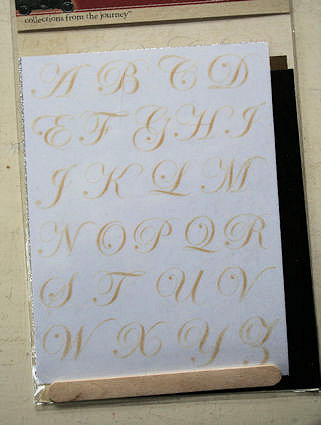 collections from the journey™
A B C D
E F G H I
J K L M
N O P Q R
S T U V
W X Y Z